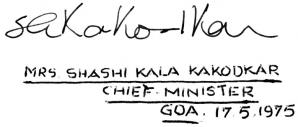 MRS. SHASHI KALA KAKODKAR
CHIEF. MINISTER
GOA. 17.5.1975